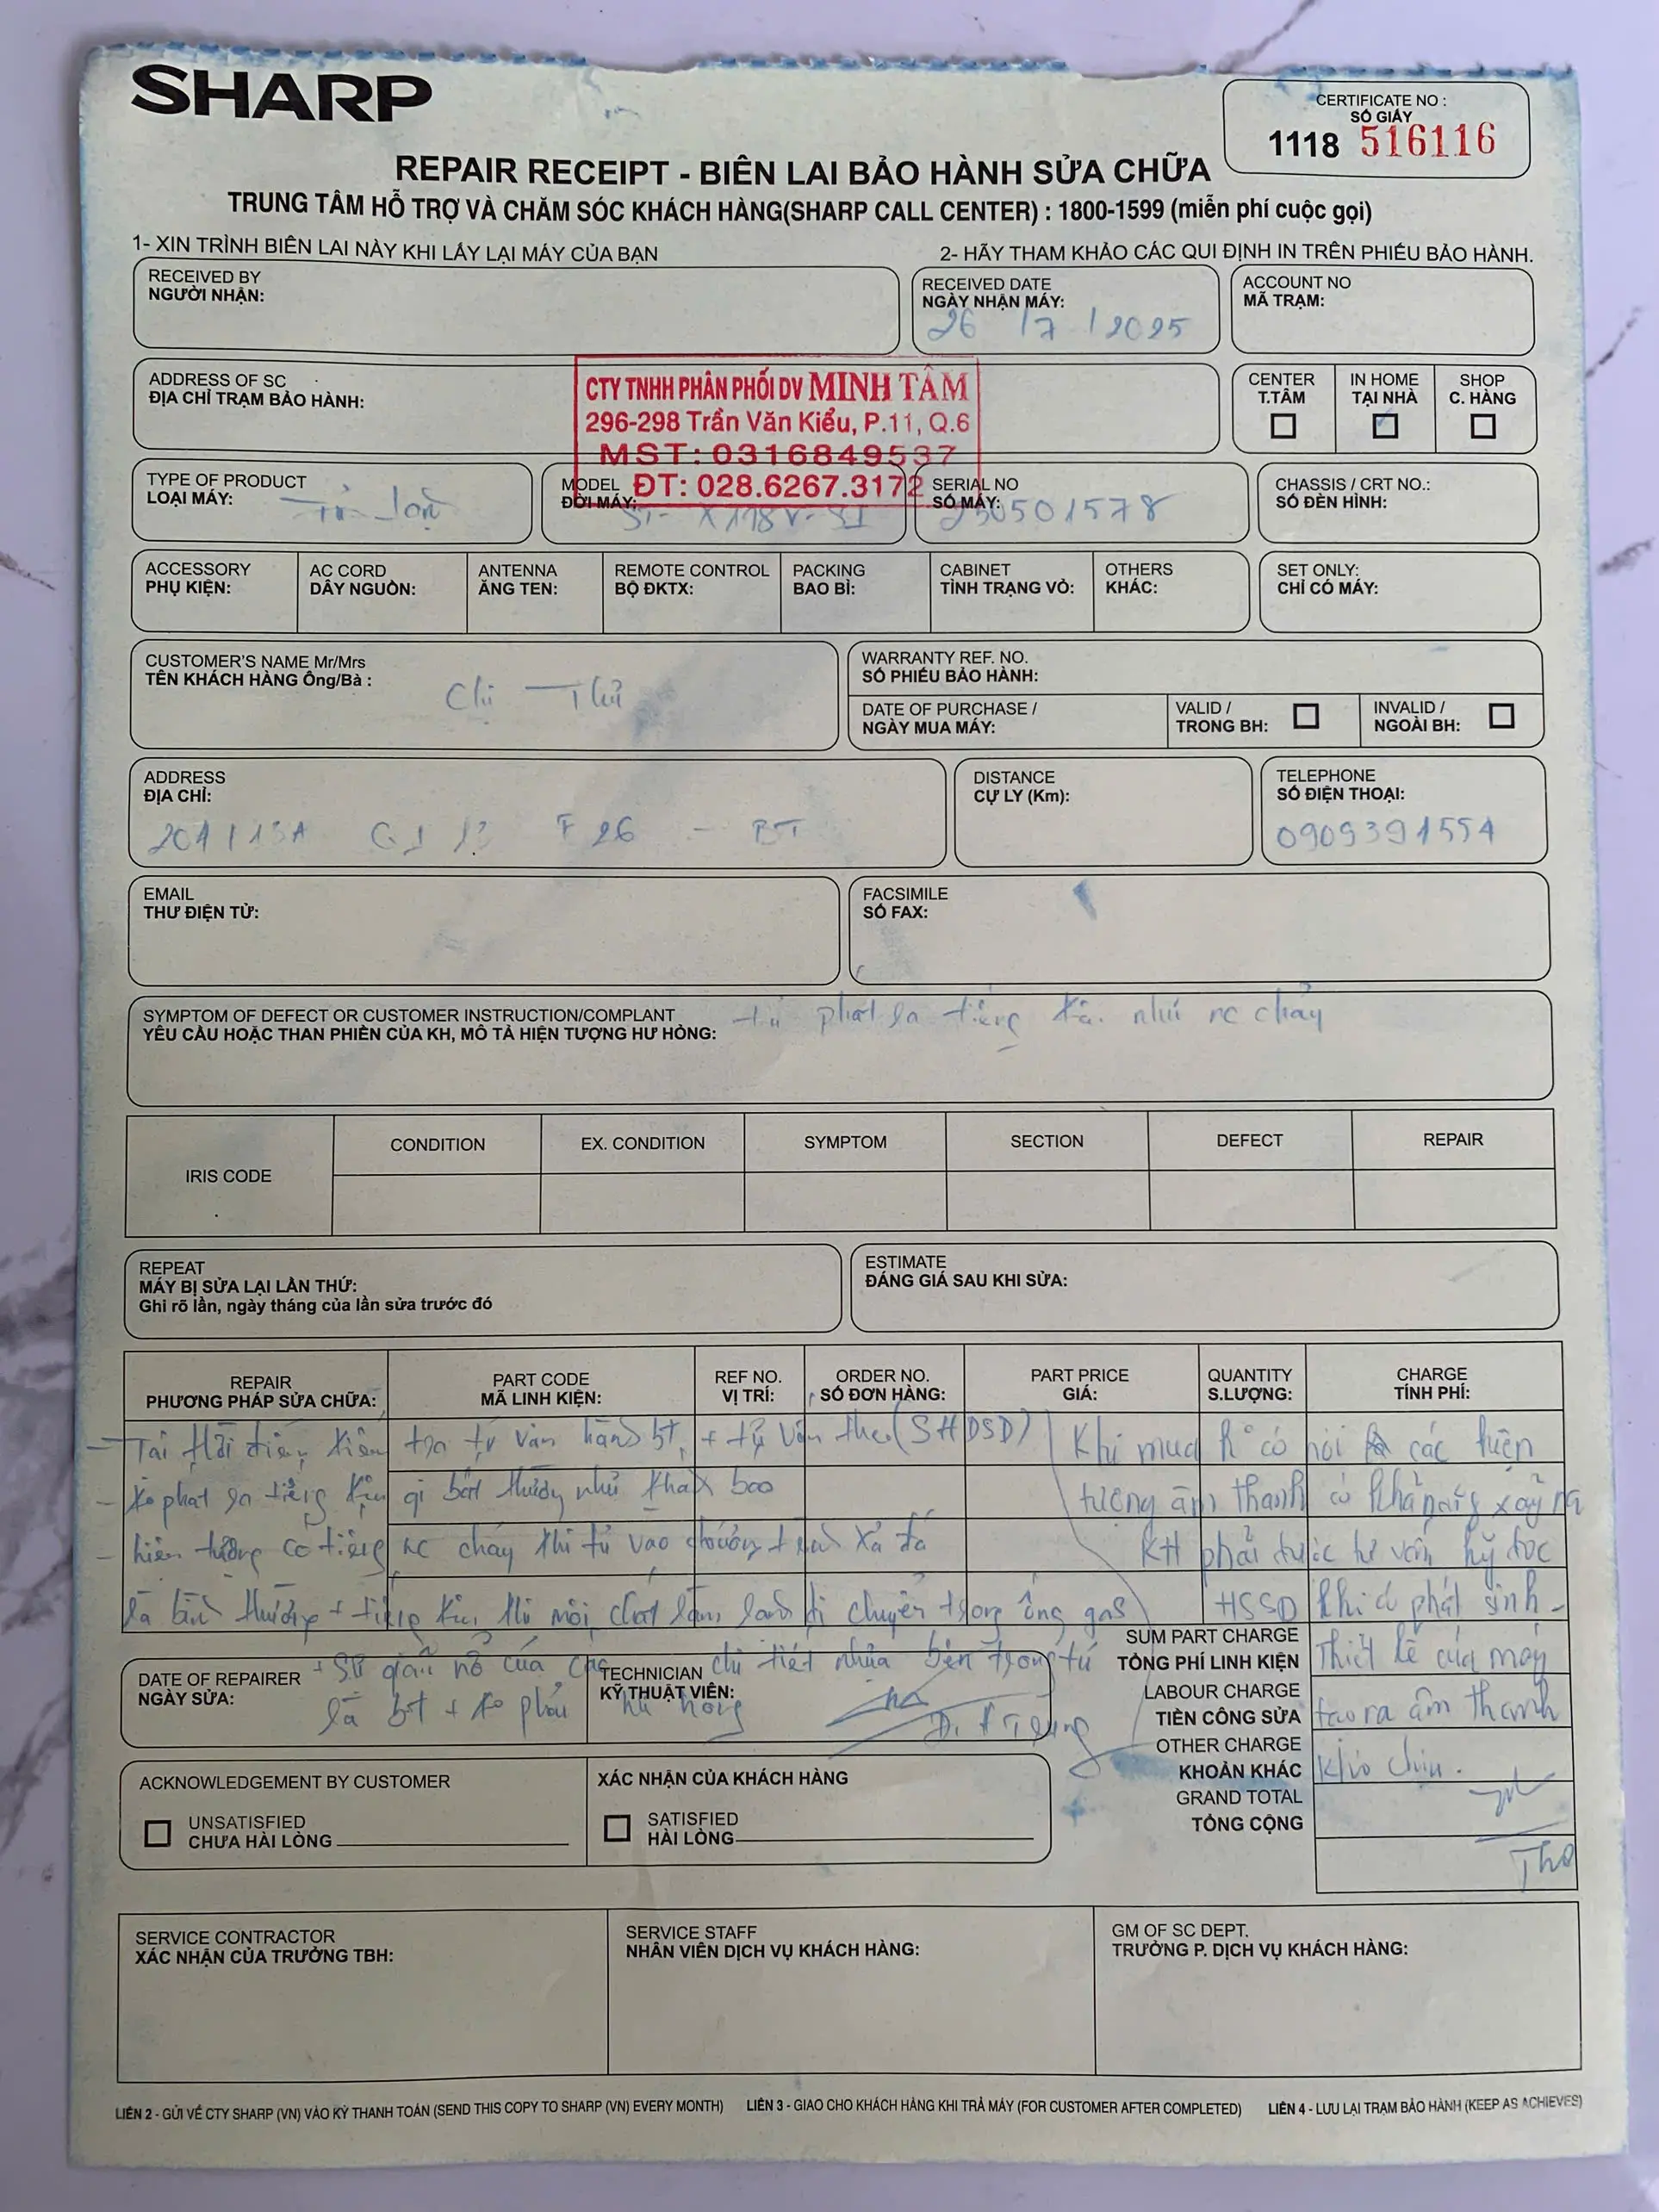 SHARP
CERTIFICATE NO :
SỐ GIẤY
1118 516116
REPAIR RECEIPT - BIÊN LAI BẢO HÀNH SỬA CHỮA
TRUNG TÂM HỖ TRỢ VÀ CHĂM SÓC KHÁCH HÀNG(SHARP CALL CENTER) : 1800-1599 (miễn phí cuộc gọi)
1- XIN TRÌNH BIÊN LAI NÀY KHI LẤY LẠI MÁY CỦA BẠN
2- HÃY THAM KHẢO CÁC QUI ĐỊNH IN TRÊN PHIẾU BẢO HÀNH.
RECEIVED BY
NGƯỜI NHẬN:
RECEIVED DATE
NGÀY NHẬN MÁY:
26 / 7 / 2025
ACCOUNT NO
MÃ TRẠM:
ADDRESS OF SC
ĐỊA CHỈ TRẠM BẢO HÀNH:
CTY TNHH PHÂN PHỐI DV MINH TÂM
296-298 Trần Văn Kiểu, P.11, Q.6
MST: 0316849537
ĐT: 028.6267.3172
CENTER
T.TÂM
IN HOME
TẠI NHÀ
SHOP
C. HÀNG
TYPE OF PRODUCT
LOẠI MÁY:
Tủ lạnh
MODEL
ĐỜI MÁY:
SERIAL NO
SỐ MÁY:
250501578
CHASSIS / CRT NO.:
SỐ ĐÈN HÌNH:
ACCESSORY
PHỤ KIỆN:
AC CORD
DÂY NGUỒN:
ANTENNA
ĂNG TEN:
REMOTE CONTROL
BỘ ĐKTX:
PACKING
BAO BÌ:
CABINET
TÌNH TRẠNG VỎ:
OTHERS
KHÁC:
SET ONLY:
CHỈ CÓ MÁY:
CUSTOMER'S NAME Mr/Mrs
TÊN KHÁCH HÀNG Ông/Bà :
Chị
WARRANTY REF. NO.
SỐ PHIẾU BẢO HÀNH:
DATE OF PURCHASE /
NGÀY MUA MÁY:
VALID /
TRONG BH:
INVALID /
NGOÀI BH:
ADDRESS
ĐỊA CHỈ:
201/13A F 26 - BT
DISTANCE
CỰ LY (Km):
TELEPHONE
SỐ ĐIỆN THOẠI:
0909391554
EMAIL
THƯ ĐIỆN TỬ:
FACSIMILE
SỐ FAX:
SYMPTOM OF DEFECT OR CUSTOMER INSTRUCTION/COMPLANT
YÊU CẦU HOẶC THAN PHIỀN CỦA KH, MÔ TẢ HIỆN TƯỢNG HƯ HỎNG:
tủ phát ra tiếng kêu như nc chảy
IRIS CODE
CONDITION
EX. CONDITION
SYMPTOM
SECTION
DEFECT
REPAIR
REPEAT
MÁY BỊ SỬA LẠI LẦN THỨ:
Ghi rõ lần, ngày tháng của lần sửa trước đó
ESTIMATE
ĐÁNG GIÁ SAU KHI SỬA:
REPAIR
PHƯƠNG PHÁP SỬA CHỮA:
PART CODE
MÃ LINH KIỆN:
REF NO.
VỊ TRÍ:
ORDER NO.
SỐ ĐƠN HÀNG:
PART PRICE
GIÁ:
QUANTITY
S.LƯỢNG:
CHARGE
TÍNH PHÍ:
- Tại thời điểm kiểm tra tủ vận hành bt,
- ko phát ra tiếng kêu gì bất thường như khách báo
- hiện tượng có tiếng nc chảy khi tủ vào chương trình xả đá
là bình thường + tiếng kêu khi môi chất làm lạnh di chuyển trong ống gas
+ sự giãn nở của các chi tiết nhựa bên trong tủ
là bt + ko phải hư hỏng
Khi mua có nói các hiện
tượng âm thanh có khả năng xảy ra
KH phải được tư vấn kỹ đọc
HSSD khi có phát sinh -
Thiết kế của máy
tạo ra âm thanh
khó chịu.
SUM PART CHARGE
TỔNG PHÍ LINH KIỆN
LABOUR CHARGE
TIỀN CÔNG SỬA
OTHER CHARGE
KHOẢN KHÁC
GRAND TOTAL
TỔNG CỘNG
DATE OF REPAIRER
NGÀY SỬA:
TECHNICIAN
KỸ THUẬT VIÊN:
ACKNOWLEDGEMENT BY CUSTOMER
XÁC NHẬN CỦA KHÁCH HÀNG
UNSATISFIED
CHƯA HÀI LÒNG
SATISFIED
HÀI LÒNG
SERVICE CONTRACTOR
XÁC NHẬN CỦA TRƯỞNG TBH:
SERVICE STAFF
NHÂN VIÊN DỊCH VỤ KHÁCH HÀNG:
GM OF SC DEPT.
TRƯỞNG P. DỊCH VỤ KHÁCH HÀNG:
LIÊN 2 - GỬI VỀ CTY SHARP (VN) VÀO KỲ THANH TOÁN (SEND THIS COPY TO SHARP (VN) EVERY MONTH)
LIÊN 3 - GIAO CHO KHÁCH HÀNG KHI TRẢ MÁY (FOR CUSTOMER AFTER COMPLETED)
LIÊN 4 - LƯU LẠI TRẠM BẢO HÀNH (KEEP AS ACHIEVES)